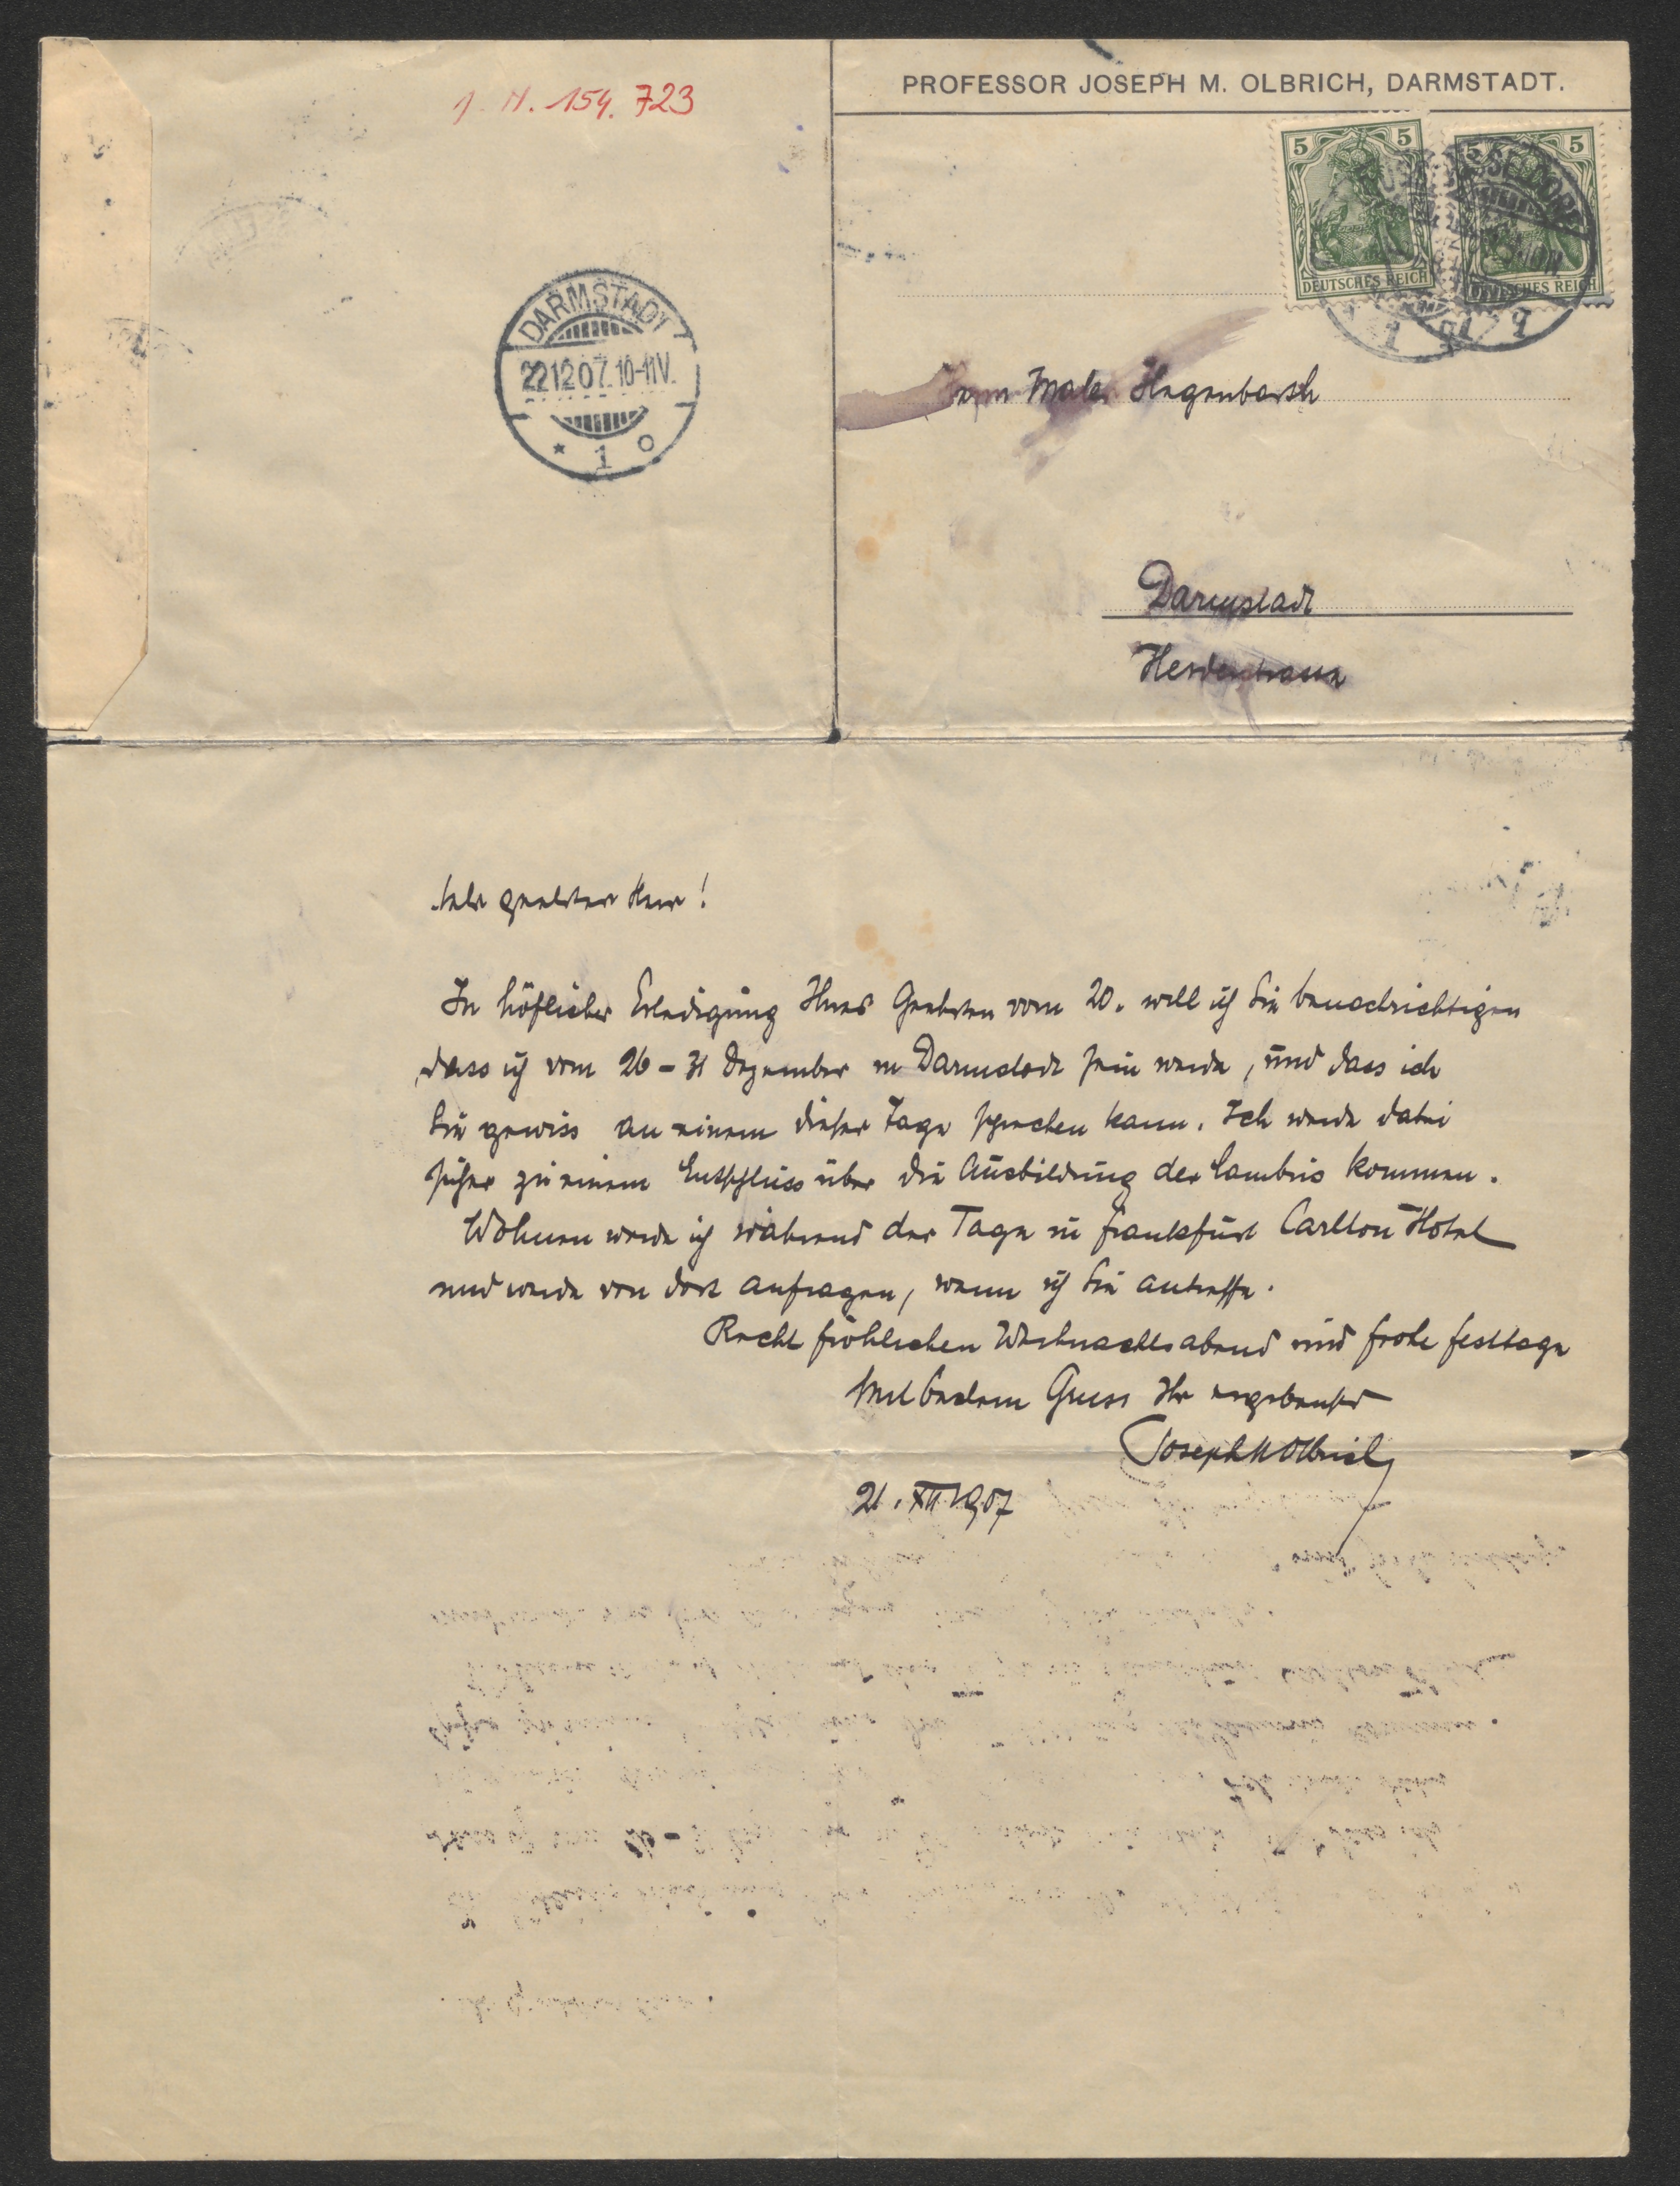 J. N. 154.723
PROFESSOR JOSEPH M. OLBRICH, DARMSTADT.
5 5
5 5
DEUTSCHES REICH
DEUTSCHES REICH
DÜSSELDORF
DARMSTADT
22.12.07. 10-11V.
* 1 o
Maler Hegenbarth
Darmstadt
Herderstrasse
Sehr geehrter Herr!
In höflicher Erledigung Ihres Geehrten vom 20. will ich Sie benachrichtigen
dass ich vom 26 - 31 Dezember in Darmstadt sein werde, und dass ich
Sie gewiss an einem dieser Tage sprechen kann. Ich werde dabei
sicher zu einem Entschluss über die Ausbildung der Lambris kommen.
Wohnen werde ich während der Tage in Frankfurt Carlton Hotel
und werde von dort anfragen, wann ich Sie antreffe.
Recht fröhlichen Weihnachtsabend und frohe Festtage
Mit bestem Gruss Ihr ergebenster
Joseph M Olbrich
21. XII 1907